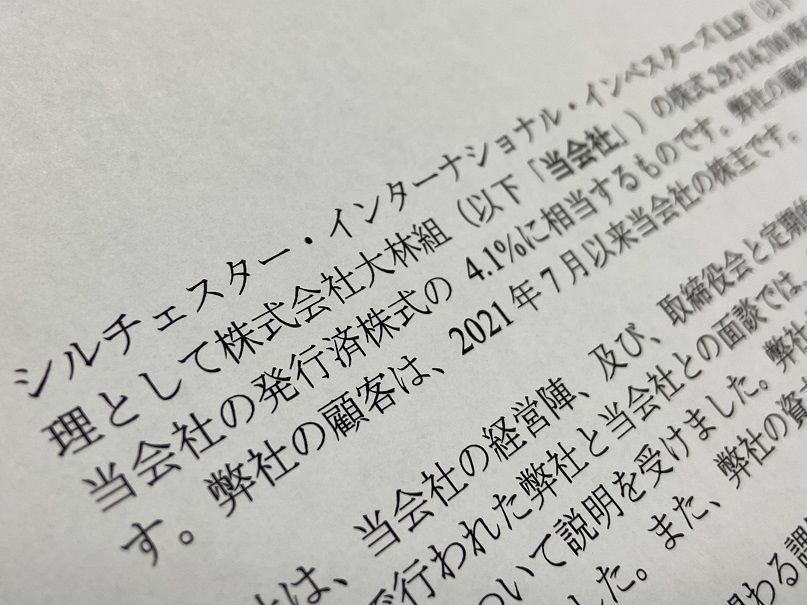 シルチェスター・インターナショナル・インベスターズ LLP（以下
理として株式会社大林組（以下「当会社」）の株式 29,714,700 株
当会社の発行済株式の 4.1%に相当するものです。弊社の顧客
す。弊社の顧客は、2021 年 7 月以来当会社の株主です。
は、当会社の経営陣、及び、取締役会と定期的
で行われた弊社と当会社との面談では、
ついて説明を受けました。弊社
した。また、弊社の資
わる調